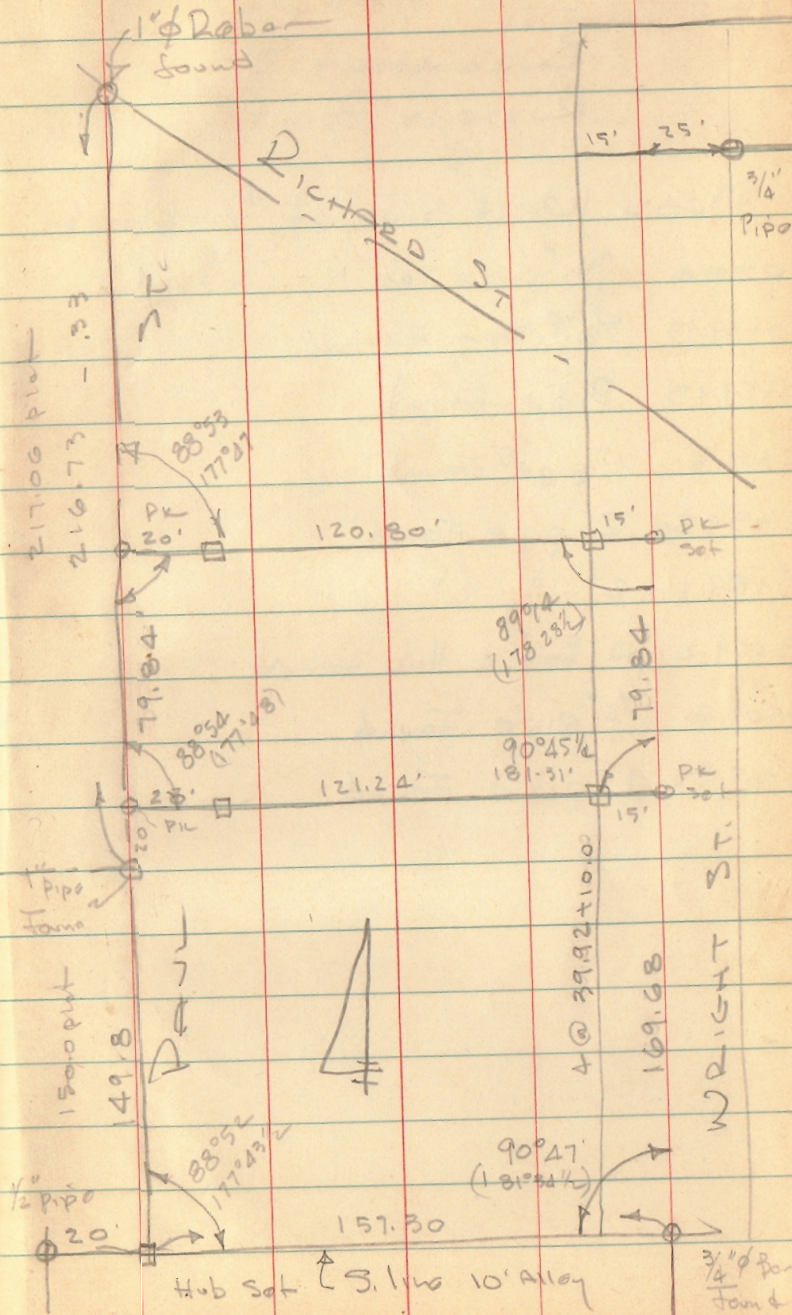 1"φ Rebar
found
RICHARD ST.
15' 25'
3/4"
Pipe
ST.
217.06 plat
216.73 - .33
88°53
177°47
PK
20'
120.80'
15'
PK
Set
89°14
(178°28½)
79.84'
79.84
88°54
(177°48)
90°45¼
181°31'
121.24'
PK
20
15'
PK
Set
1" pipe
found
PAUL
150.0 plat
149.8
4 @ 39.92 + 10.0
169.68
WRIGHT ST.
88°52
177°43½
90°47'
(181°34½)
1/2" pipe
20'
157.30
Hub Set
S. line 10' Alley
3/4"φ Bar
found